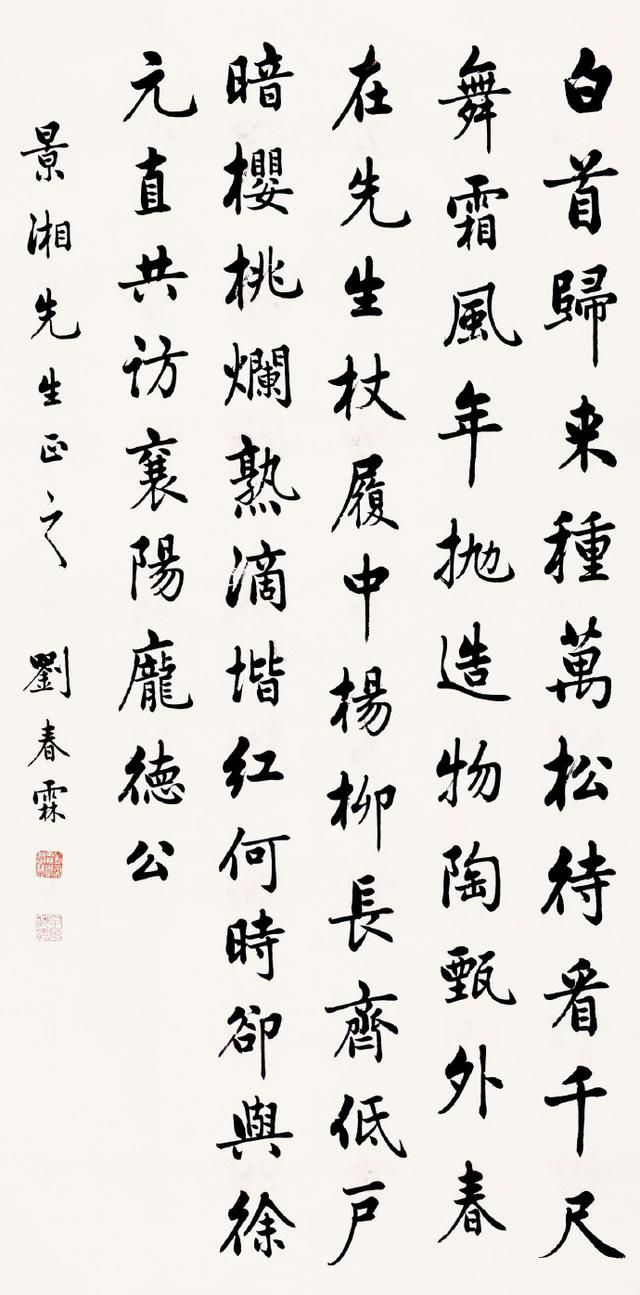 白首歸来種萬松待看千尺
舞霜風年抛造物陶甄外春
在先生杖履中楊柳長齊低戶
暗櫻桃爛熟滴堦紅何時卻與徐
元直共访襄陽龐德公
景湘先生正之
劉春霖